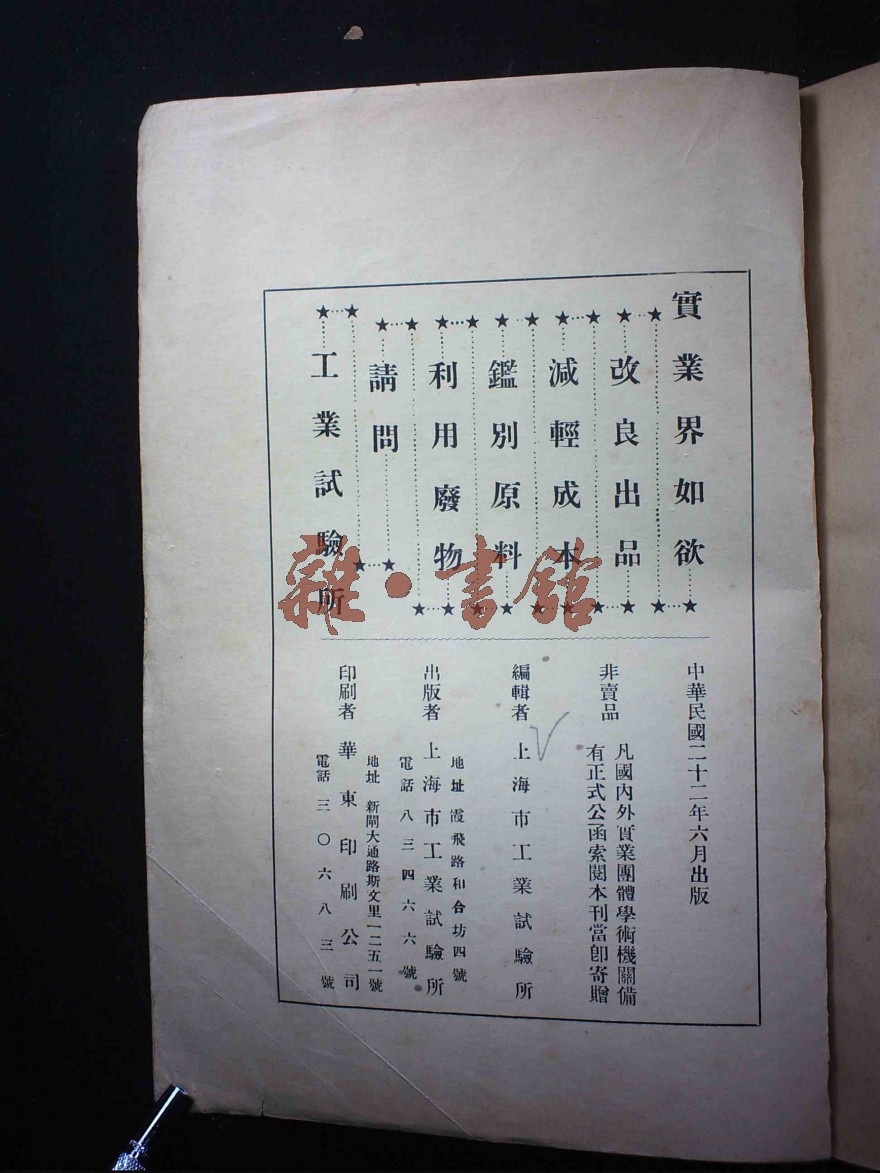 實業界如欲
改良出品
減輕成本
鑑別原料
利用廢物
請問
工業試驗所
雜·書館
中華民國二十二年六月出版
非賣品
凡國內外實業團體學術機關備
有正式公函索閱本刊當卽寄贈
編輯者 上海市工業試驗所
地址 霞飛路和合坊四號
出版者 上海市工業試驗所
電話 八三四六六號
地址 新閘大通路斯文里一二五一號
印刷者 華東印刷公司
電話 三〇六八三號